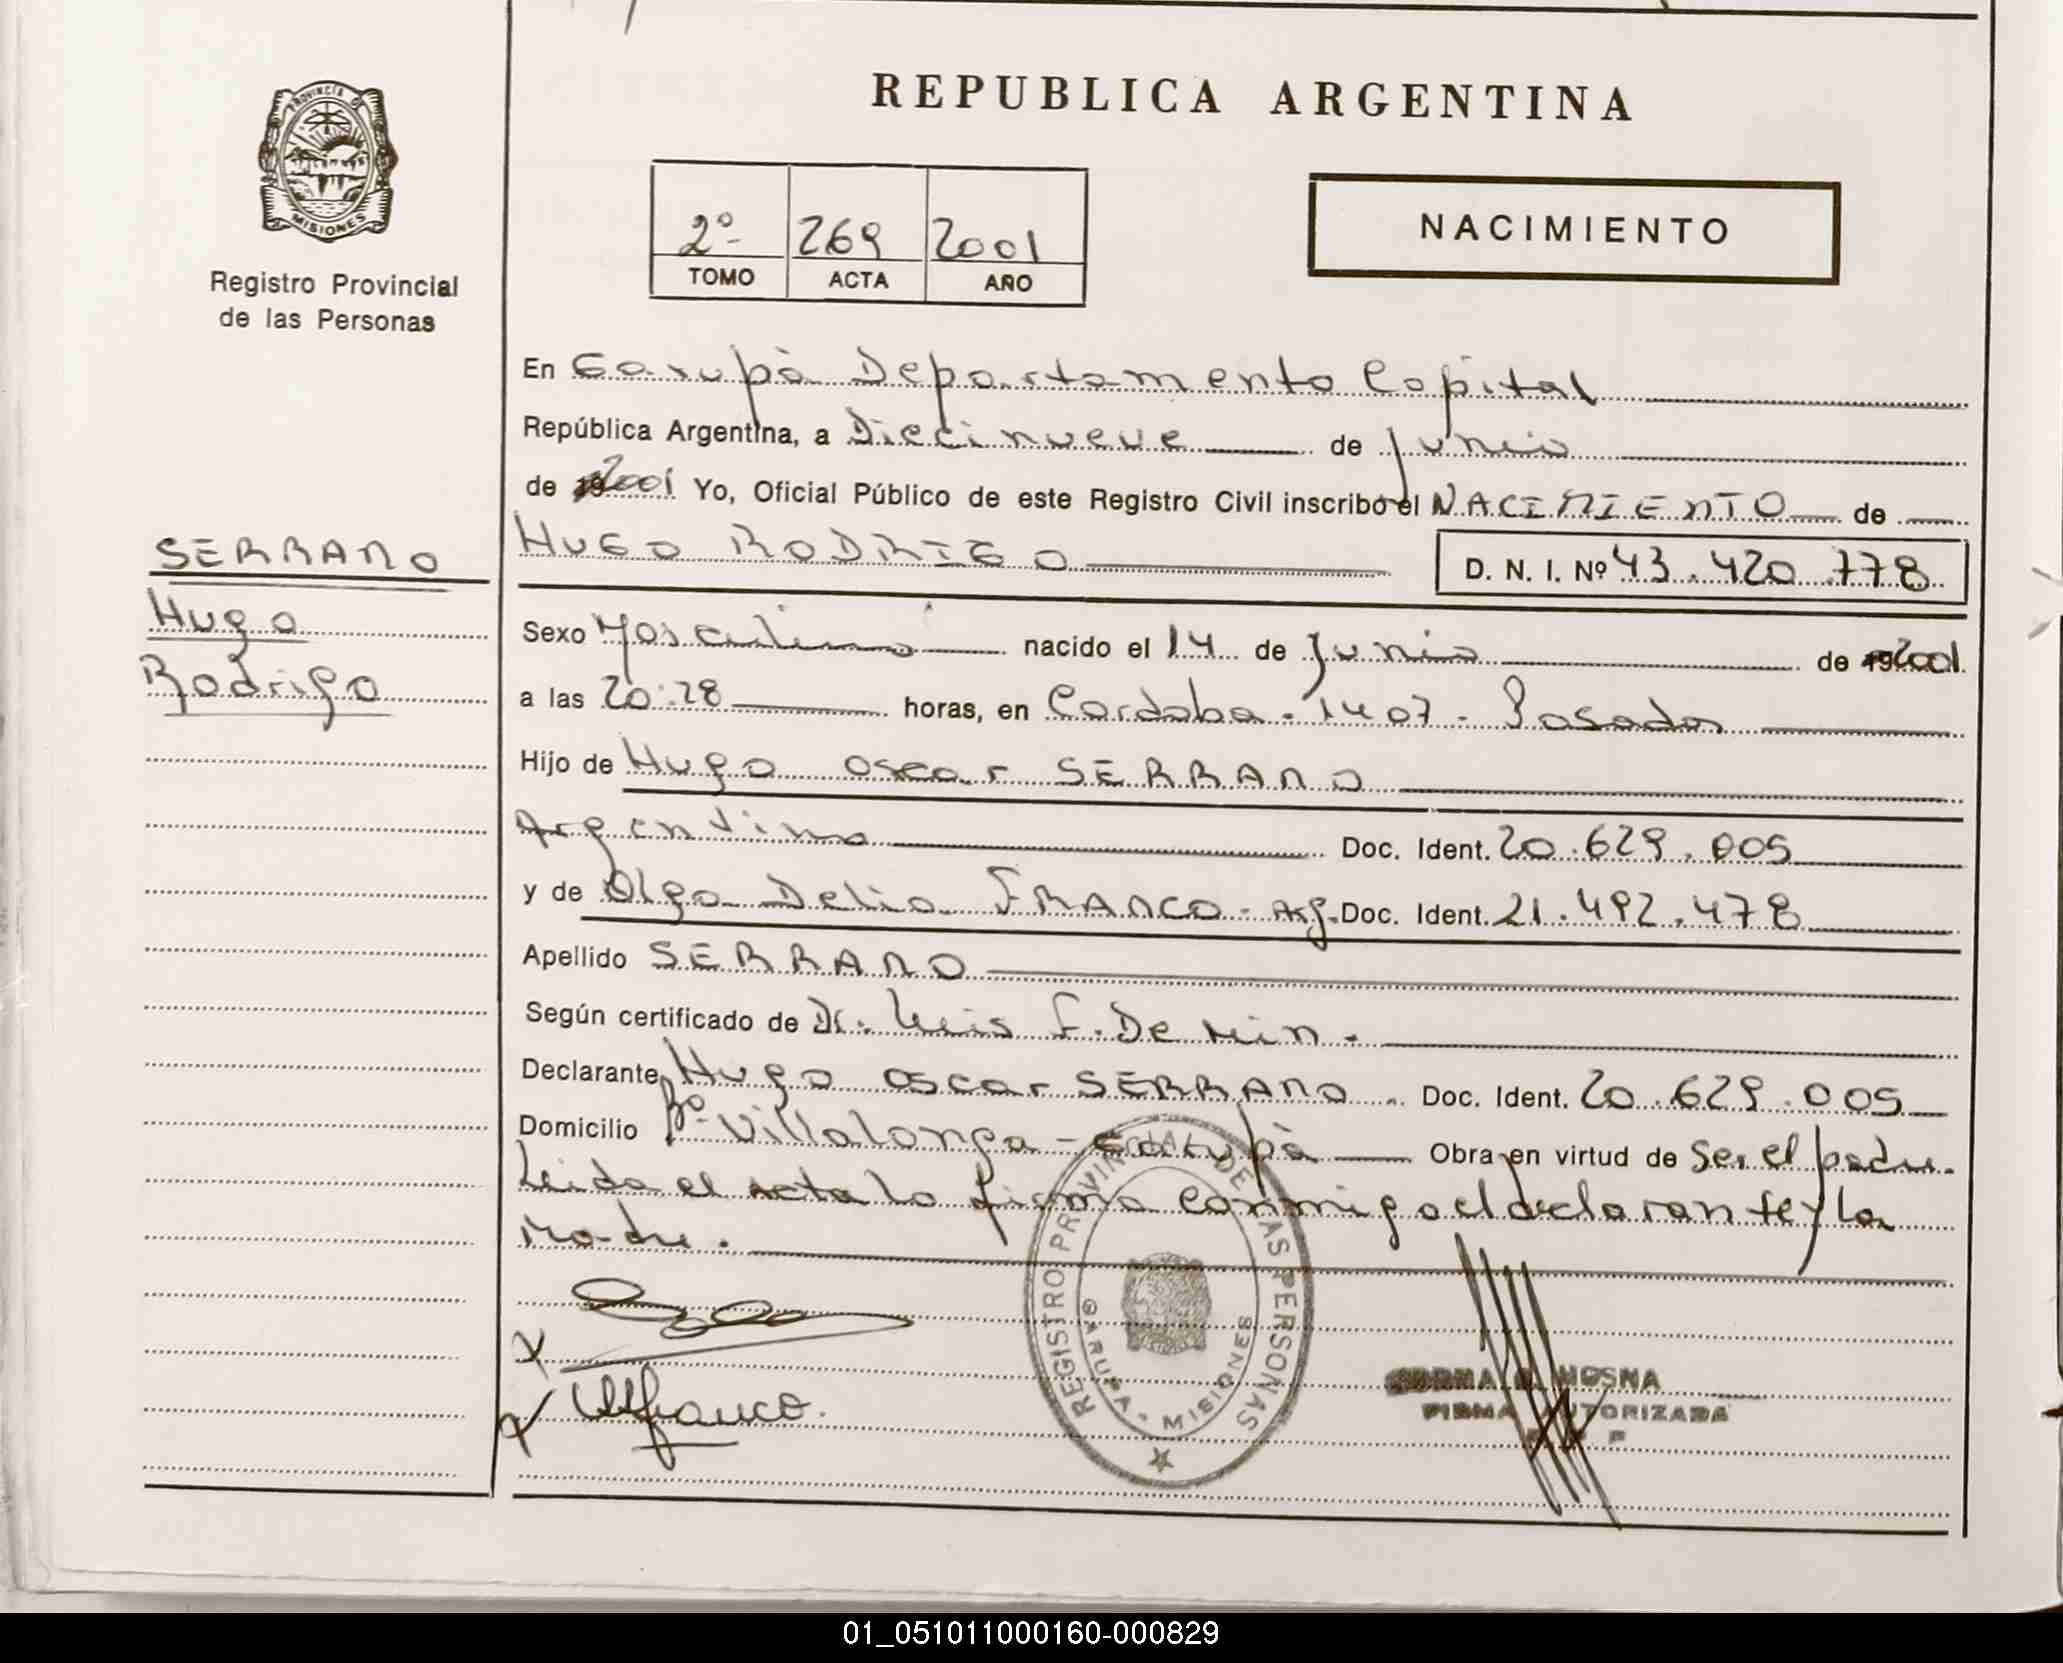 REPUBLICA ARGENTINA
PROVINCIA DE
MISIONES
Registro Provincial
de las Personas
2º 269 2001
TOMO ACTA AÑO
NACIMIENTO
En Garupà Departamento Capital
República Argentina, a Diecinueve de Junio
de 2001 Yo, Oficial Público de este Registro Civil inscribo el NACIMIENTO de
HUGO RODRIGO D. N. I. Nº 43.420.778
SERRANO
Hugo
Rodrigo
Sexo Masculino nacido el 14 de Junio de 2001
a las 20:28 horas, en Cordoba - 1407 - Posadas
Hijo de Hugo Oscar SERRANO
Argentino Doc. Ident. 20.629.005
y de Olga Delia FRANCO - Arg. Doc. Ident. 21.492.478
Apellido SERRANO
Según certificado de Dr. Luis F. De
Declarante Hugo Oscar SERRANO Doc. Ident. 20.629.005
Domicilio Bº Villalonga - Garupà Obra en virtud de Ser el padre.
Leida el acta la firma conmigo el declarante y la
Madre.
REGISTRO PROVINCIAL DE LAS PERSONAS
GARUPA - MISIONES
franco
MOSNA
FIRMA AUTORIZADA
01_051011000160-000829